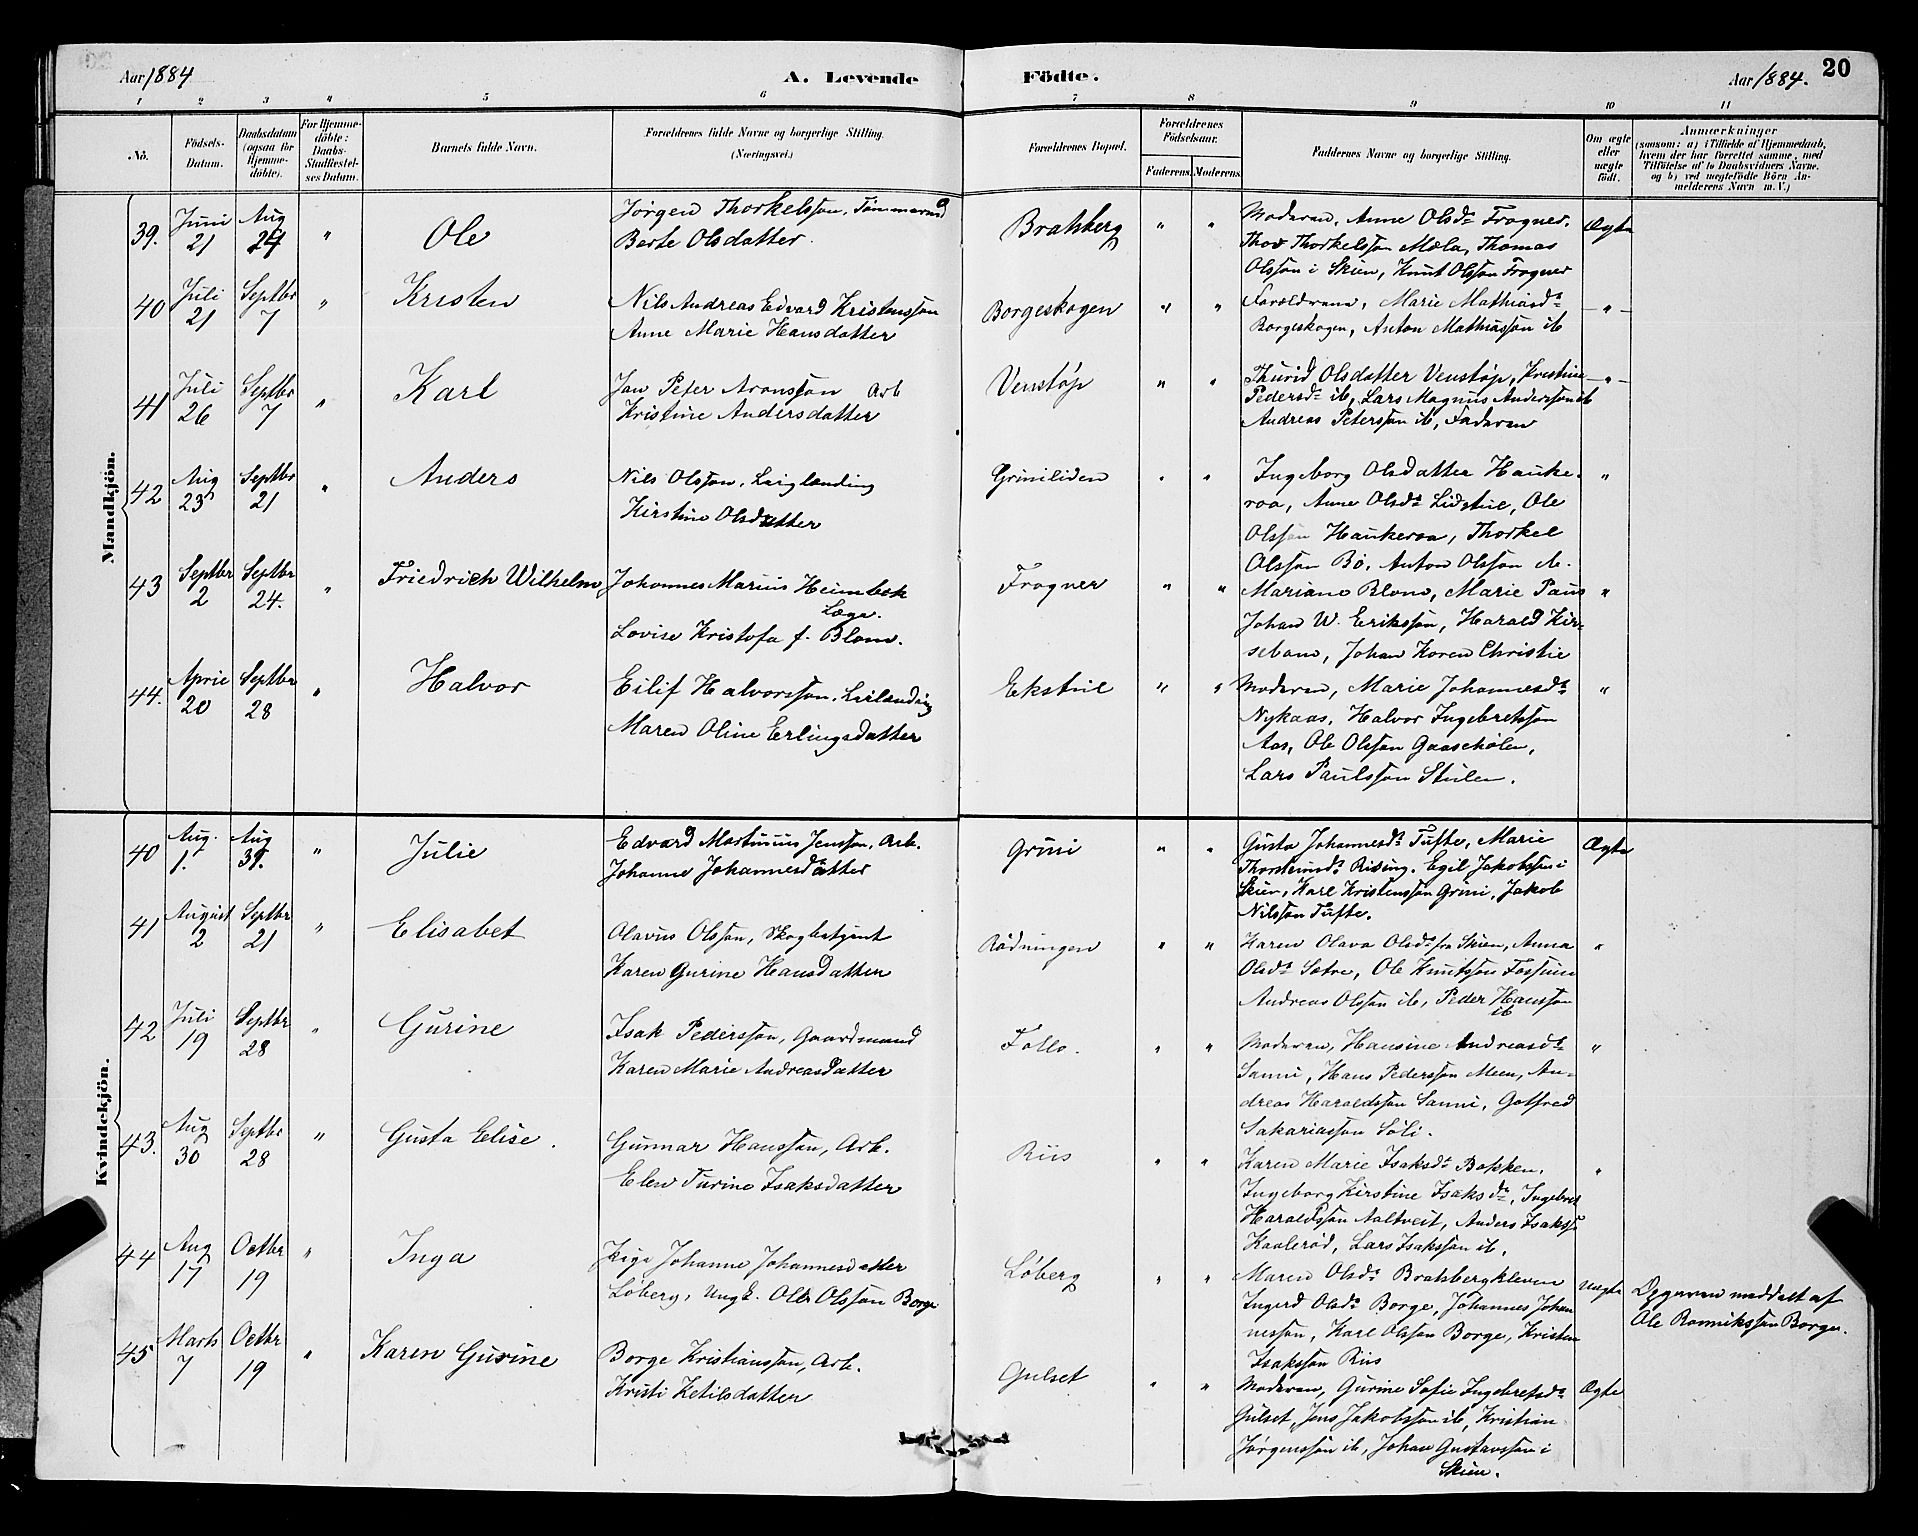 Aar 1884
A. Levende
Födte.
Aar 1884.
20
1 2 3 4 5 6 7 8 9 10 11
No.
Födsels-
Datum.
Daabsdatum
(ogsaa for
Hjemme-
döbte).
For Hjemme-
döbte:
Daabs-
Stadfæstel-
ses Datum.
Barnets fulde Navn.
Forældrenes fulde Navne og borgerlige Stilling.
(Næringsvei.)
Forældrenes Bopæl.
Forældrenes
Födselsaar.
Faderens. Moderens.
Faddernes Navne og borgerlige Stilling.
Om ægte
eller
uægte
födt.
Anmærkninger
(saasom: a) i Tilfælde af Hjemmedaab,
hvem der har forrettet samme, med
Tilföielse af to Daabsvidners Navne,
og b) ved uegtefödte Börn An-
melderens Navn m. V.)
Mandkjön.
39. Juni 21 Aug 24 " Ole
Jørgen Thorkelsson, Tømmermd
Berte Olsdatter.
Bratsberg " "
Moderen, Anne Olsdr Frogner,
Thov Thorkelsson Mæla, Thomas
Olsson i Skien, Knut Olsson Frogner
Ægte
40 Juli 21 Septbr 7 " Kristen
Nils Andreas Edvard Kristensson
Anne Marie Hansdatter
Borgeskogen " "
Forældrene, Marie Mathiasdr
Borgeskogen, Anton Mathiasson ib
"
41 Juli 26 Septbr 7 " Karl
Jan Peter Aronsson Arb
Kristine Andersdatter
Venstøp " "
Thurid Olsdatter Venstøp, Kristine
Pedersdr ib, Lars Magnus Andersson ib
Andreas Petersson ib, Faderen
"
42 Aug 23 Septbr 21 " Anders
Nils Olsson, Leiglænding
Kirstine Olsdatter
Griniliden " "
Ingeborg Olsdatter Hauke-
raa, Anne Olsdr Lidstul, Ole
Olsson Haukeraa, Thorkel
Olsson Bø, Anton Olsson ib.
"
43 Septbr 2 Septbr 24. " Friedrich Wilhelm
Johannes Marius Heimbek
Læge.
Lovise Kristofa f. Blom.
Frogner " "
Mariane Blom, Marie Paus
Johan W. Eriksson, Harald Kir-
sebom, Johan Koren Christie
"
44. April 20 Septbr 28 " Halvor
Eilif Halvorsson, Leilænding
Maren Oline Erlingsdatter
Ekstul " "
Moderen, Marie Johannesdr
Nykaas, Halvor Ingebretsson
Aas, Ole Olsson Gaasehølen,
Lars Paulsson Stulen.
"
Kvindekjön.
40 Aug. 1. Aug 31. " Julie
Edvard Martinius Jensson, Arb.
Johanne Johannesdatter
Grini " "
Gusta Johannesdr Tufte, Marie
Thorsteinsdr Rising, Egil Jakobsson i
Skien, Karl Kristensson Grini, Jakob
Nilsson Tufte.
Ægte
41 August 2 Septbr 21 " Elisabet
Olavus Olsson, Skogbetjent
Karen Gurine Hansdatter
Rødningen " "
Karen Olava Olsdr fra Skien, Anna
Olsdr Sætre, Ole Knutsson Fossum
Andreas Olsson ib, Peder Hansson
ib
"
42 Juli 19 Septbr 28 " Gurine
Isak Pedersson, Gaardmand
Karen Marie Andreasdatter
Follo. " "
Moderen, Hansine Andreasdr
Sanni, Hans Pedersson Meen, An-
dreas Haraldsson Sanni, Gotfred
Sakariasson Soli.
"
43. Aug 30 Septbr 28 " Gusta Elise.
Gunnar Hansson, Arb.
Elen Turine Isaksdatter
Riis " "
Karen Marie Isaksdr Bakken,
Ingeborg Kirstine Isaksdr, Ingebret
Haraldsson Aaltveit, Anders Isakss
Kaalerød, Lars Isaksson ib.
"
44 Aug 17 Octbr 19 " Inga
Pige Johanne Johannesdatter
Løberg, Ungk. Ole Olsson Borge
Løberg " "
Maren Olsdr Bratsbergkleven
Ingerd Olsdr Borge, Johannes Johan
nesson, Karl Olsson Borge, Kristen
Isaksson Riis
Uægte
Opgaven meddelt af
Ole Borge.
45 Marts 7 Octbr 19 " Karen Gurine
Borge Kristiansson, Arb.
Kristi Ketilsdatter
Gulset " "
Moderen, Gurine Sofie Ingebretsdr
Gulset, Jens Jakobsson ib, Kristian
Jørgensson ib, Johan Gustavsson i
Skien.
Ægte